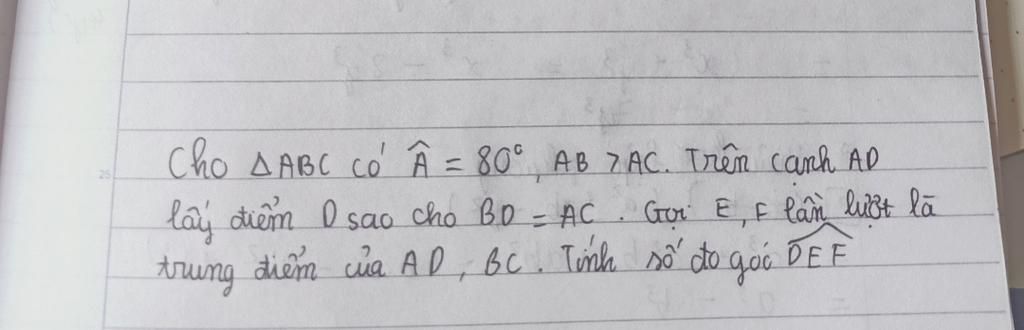 Cho ΔABC có Â = 80°, AB > AC. Trên cạnh AD
lấy điểm D sao cho BD = AC. Gọi E, F lần lượt là
trung điểm của AD, BC. Tính số đo góc \widehat{DEF}
25